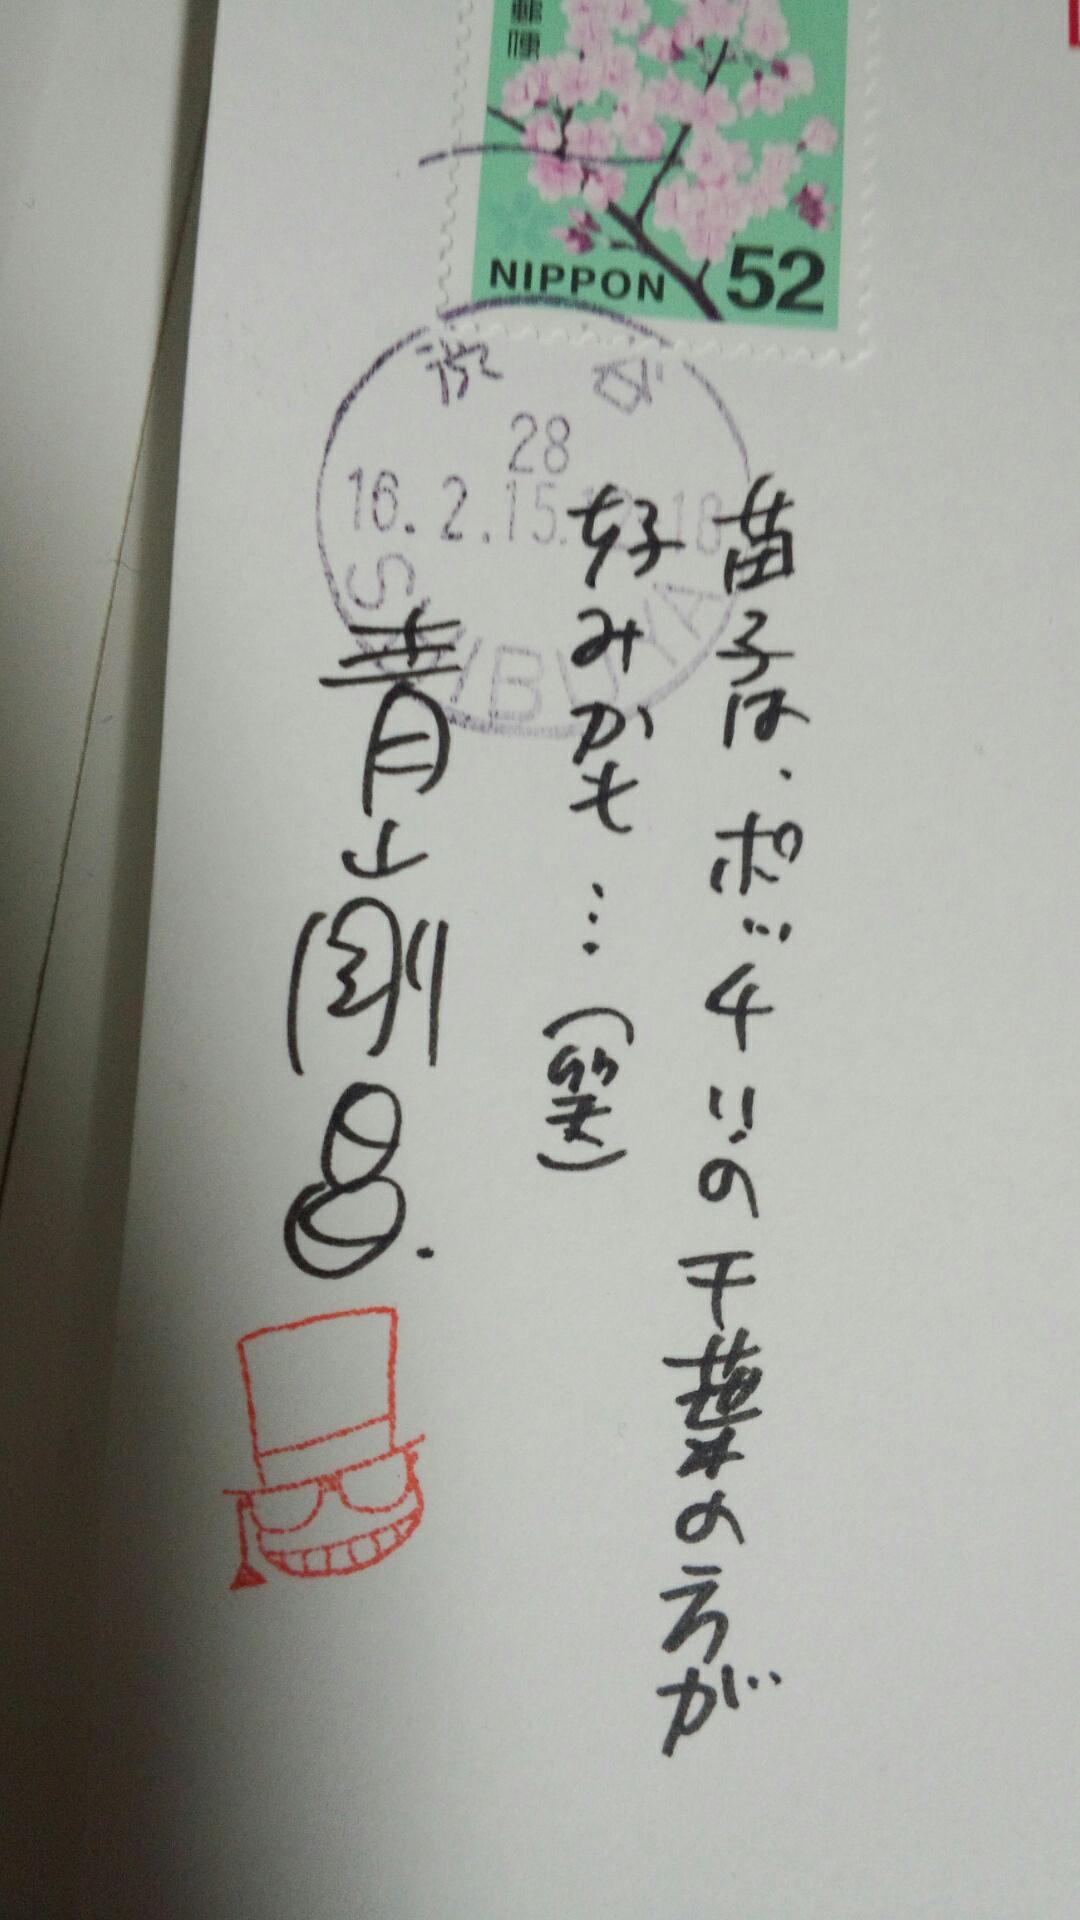 郵便
NIPPON 52
渋谷
28
16.2.15.
SHIBUYA
苗子は、ポッチリの千葉の方が
好みかも…(笑)
青山剛昌.